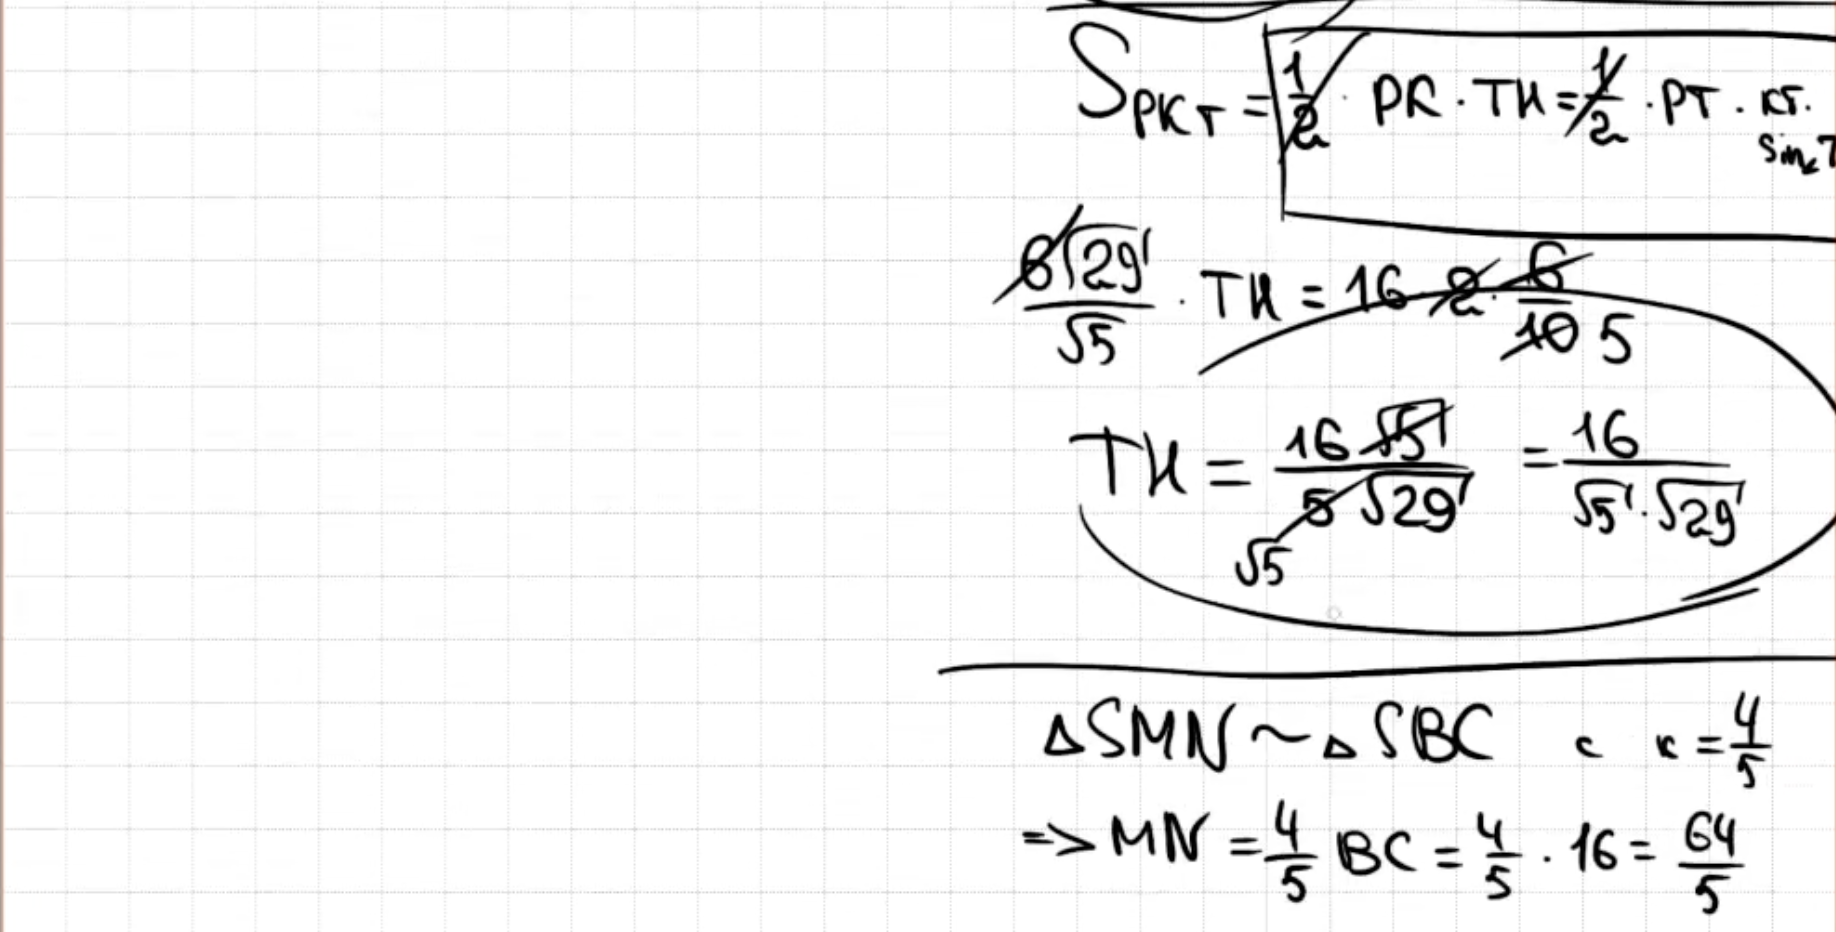 S_PKT = 1/2 · PK · TH = 1/2 · PT · KT · sin∠T
6√29/√5 · TH = 16 · 2 · 6/10 5
TH = 16√5/5√29 = 16/√5 · √29
√5
△SMN ~ △SBC с к = 4/5
=> MN = 4/5 BC = 4/5 · 16 = 64/5